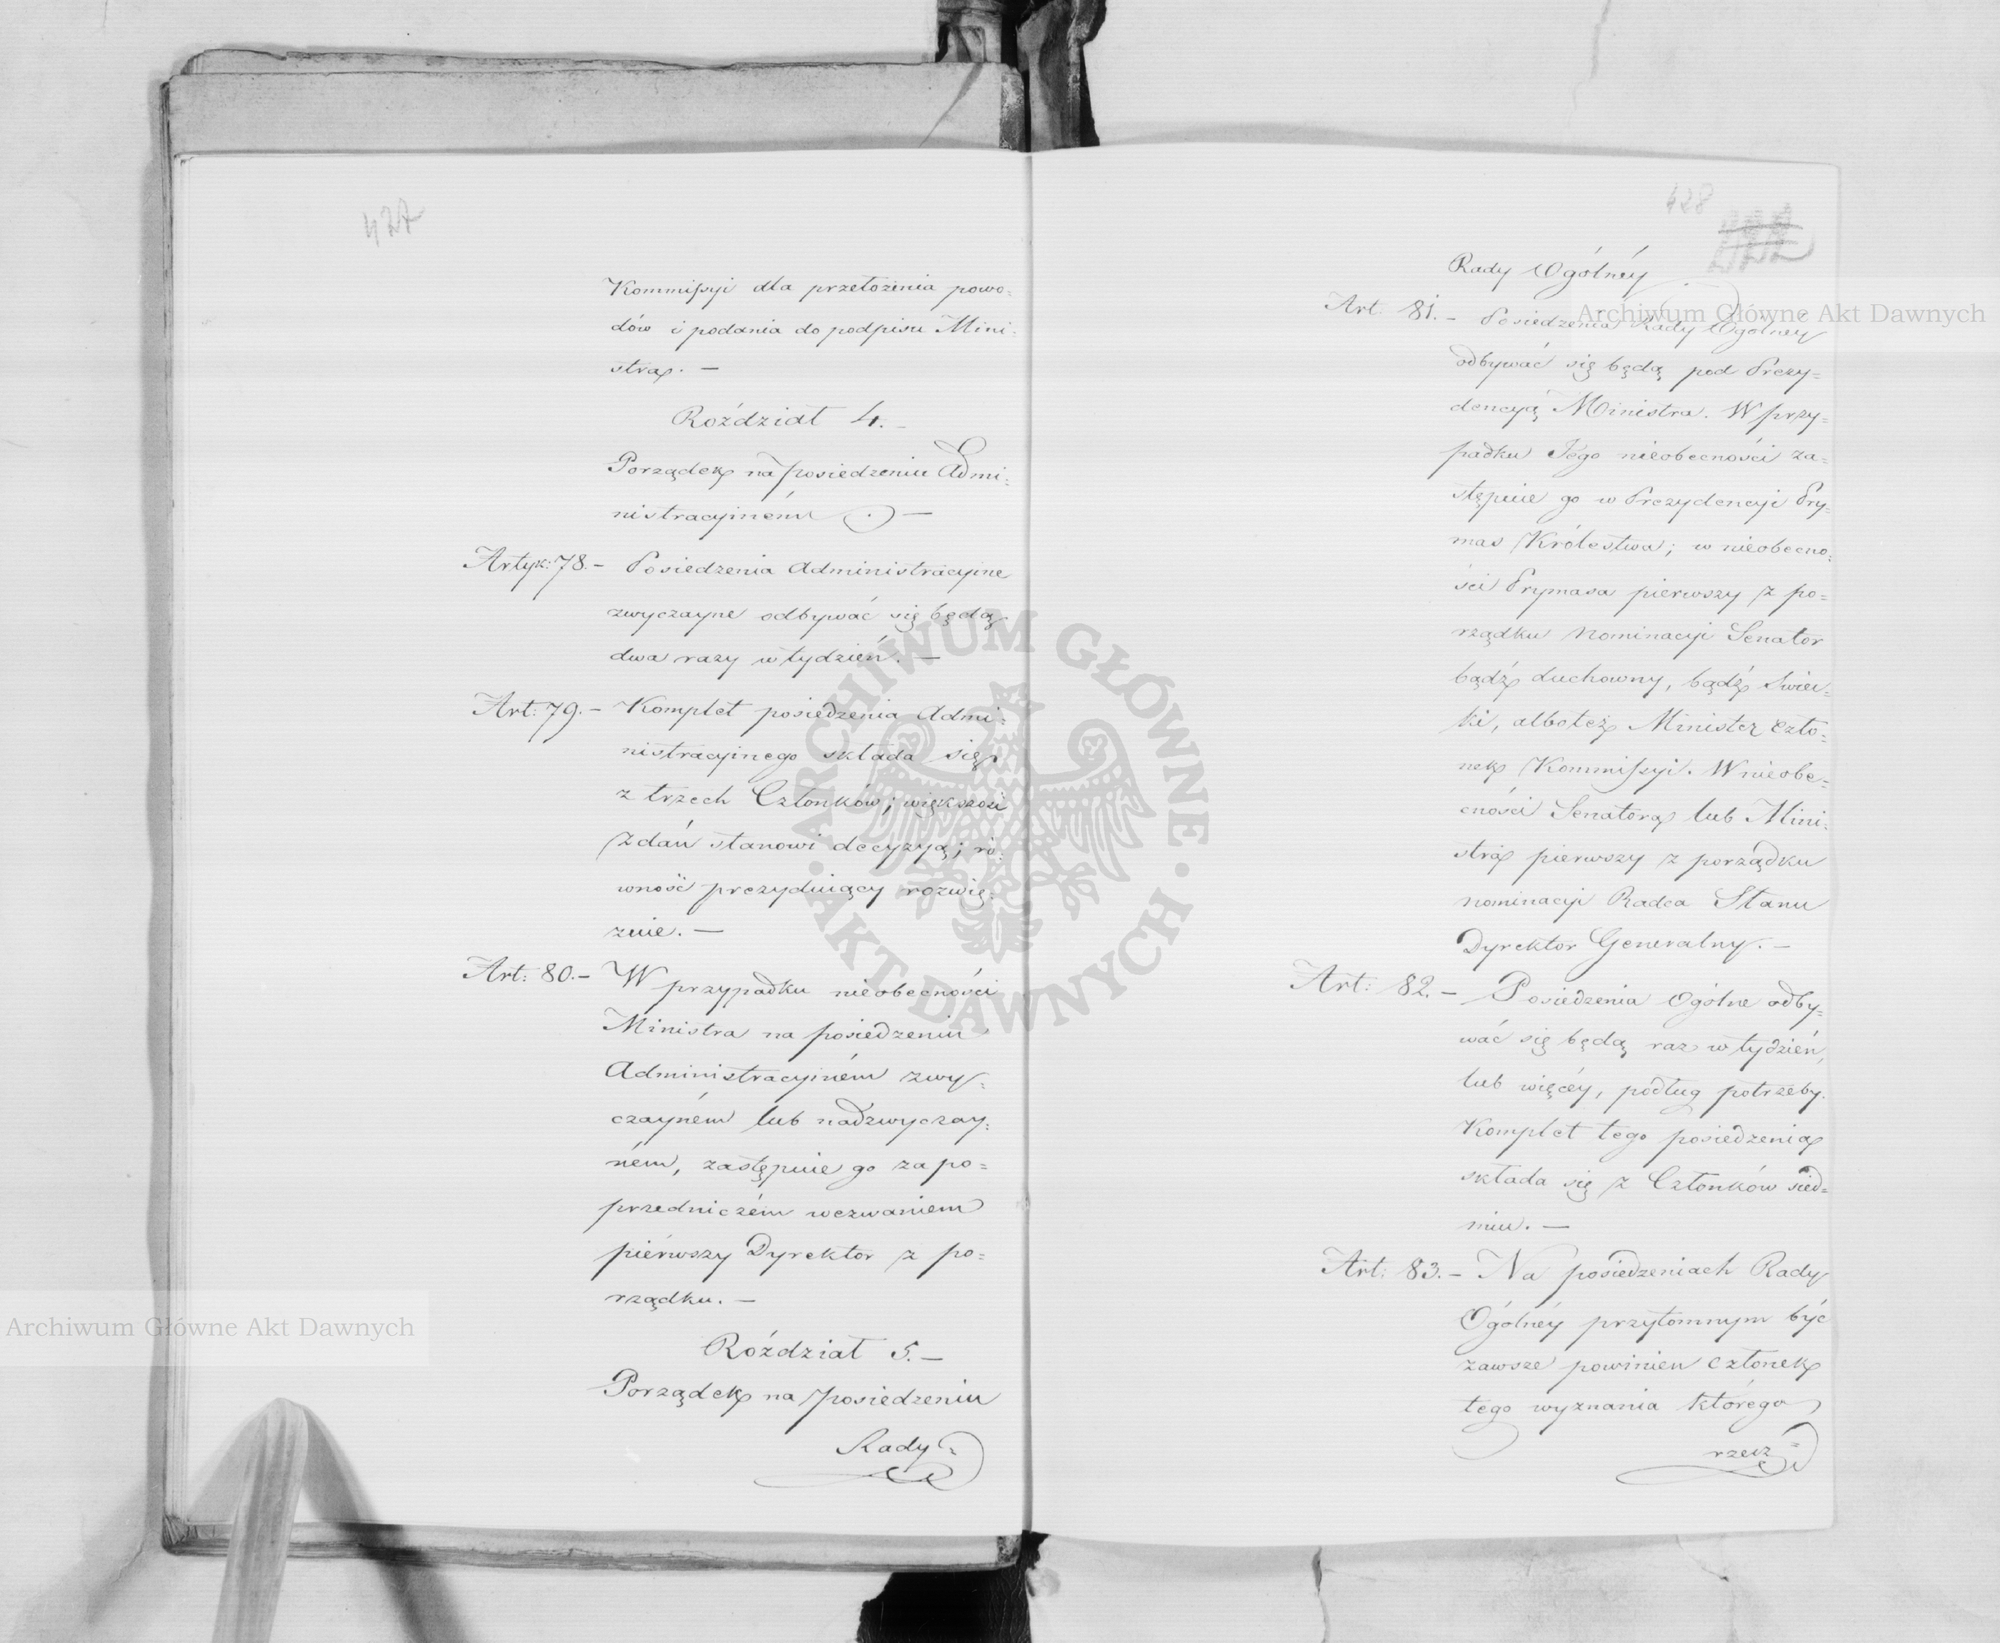 427
Kommissyi dla przełożenia powo=
dów i podania do podpisu Mini=
stra. —
Roździał 4. –
Porządek na posiedzeniu Admi=
nistracyiném —
Artyk: 78. – Posiedzenia Administracyine
zwyczayne odbywać się będą
dwa razy w tydzień. —
Art: 79. – Komplet posiedzenia Admi=
nistracyinego składa się
z trzech Członków; większość
zdań stanowi decyzyą; ró=
wność prezyduiący rozwią=
zuie. —
Art: 80. – W przypadku nieobecności
Ministra na posiedzeniu
Administracyiném zwy=
czayném lub nadzwyczay=
ném, zastępuie go za po=
przedniczém wezwaniem
piérwszy Dyrektor z po=
rządku. —
Roździał 5. —
Porządek na posiedzeniu
Rady =
428
Rady Ogólnéy
Art. 81. – Posiedzenia Rady Ogólnéy
odbywać się będą pod Prezy=
dencyą Ministra. W przy=
padku Jego nieobecności za=
stępuie go w Prezydencyi Pry=
mas Królestwa; w nieobecno=
ści Prymasa pierwszy z po=
rządku nominacyi Senator
bądź duchowny, bądź świec=
ki, alboteż Minister Czło=
nek Kommissyi. W nieobe=
cności Senatora lub Mini=
stra pierwszy z porządku
nominacyi Radca Stanu
Dyrektor Generalny. –
Art: 82. – Posiedzenia Ogólne odby=
wać się będą raz w tydzień,
lub więcéy, podług potrzeby.
Komplet tego posiedzenia
składa się z Członków sied=
miu. —
Art: 83. – Na posiedzeniach Rady
Ogólnéy przytomnym być
zawsze powinien Członek
tego wyznania którego
rzecz =
Archiwum Główne Akt Dawnych
ARCHIWUM GŁÓWNE · AKT DAWNYCH ·
Archiwum Główne Akt Dawnych